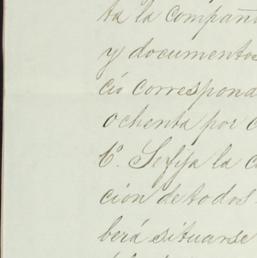 ta la compañ
y documentos
cio correspond
ochenta por c
6ª. Se fija la c
cion de todos
berá situarse